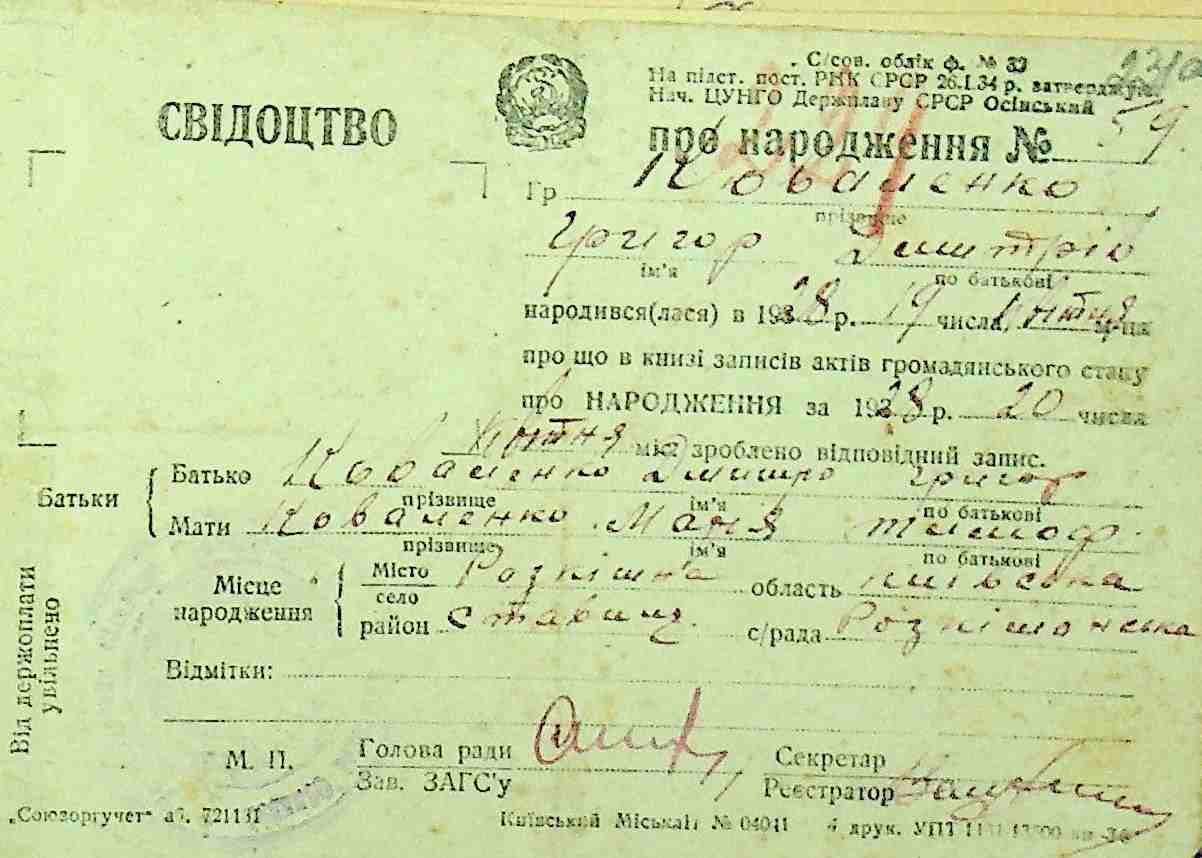 С/сов. облік ф. № 33
На підст. пост. РНК СРСР 26.I.34 р. затверджую.
Нач. ЦУНГО Держплану СРСР Осінський
СВІДОЦТВО про народження № 59
Гр Коваленко
прізвище
Григор Дмитрів
ім'я по батькові
народився(лася) в 1928 р. 19 числа, жовтня м-ця
про що в книзі записів актів громадянського стану
про НАРОДЖЕННЯ за 1928 р. 20 числа
жовтня міс. зроблено відповідний запис.
Батьки
Батько Коваленко Дмитро Григор
прізвище ім'я по батькові
Мати Коваленко Маня Тимоф.
прізвище ім'я по батькові
Місце народження
Місто Розкішна область Київська
село
район Ставищ. с/рада Розкішанська
Відмітки:
Від держоплати увільнено
М. П. Голова ради Секретар
Зав. ЗАГС'у Реєстратор
„Союзоргучет" 721131 Київський Міськліт № 04041 4 друк. УПТ